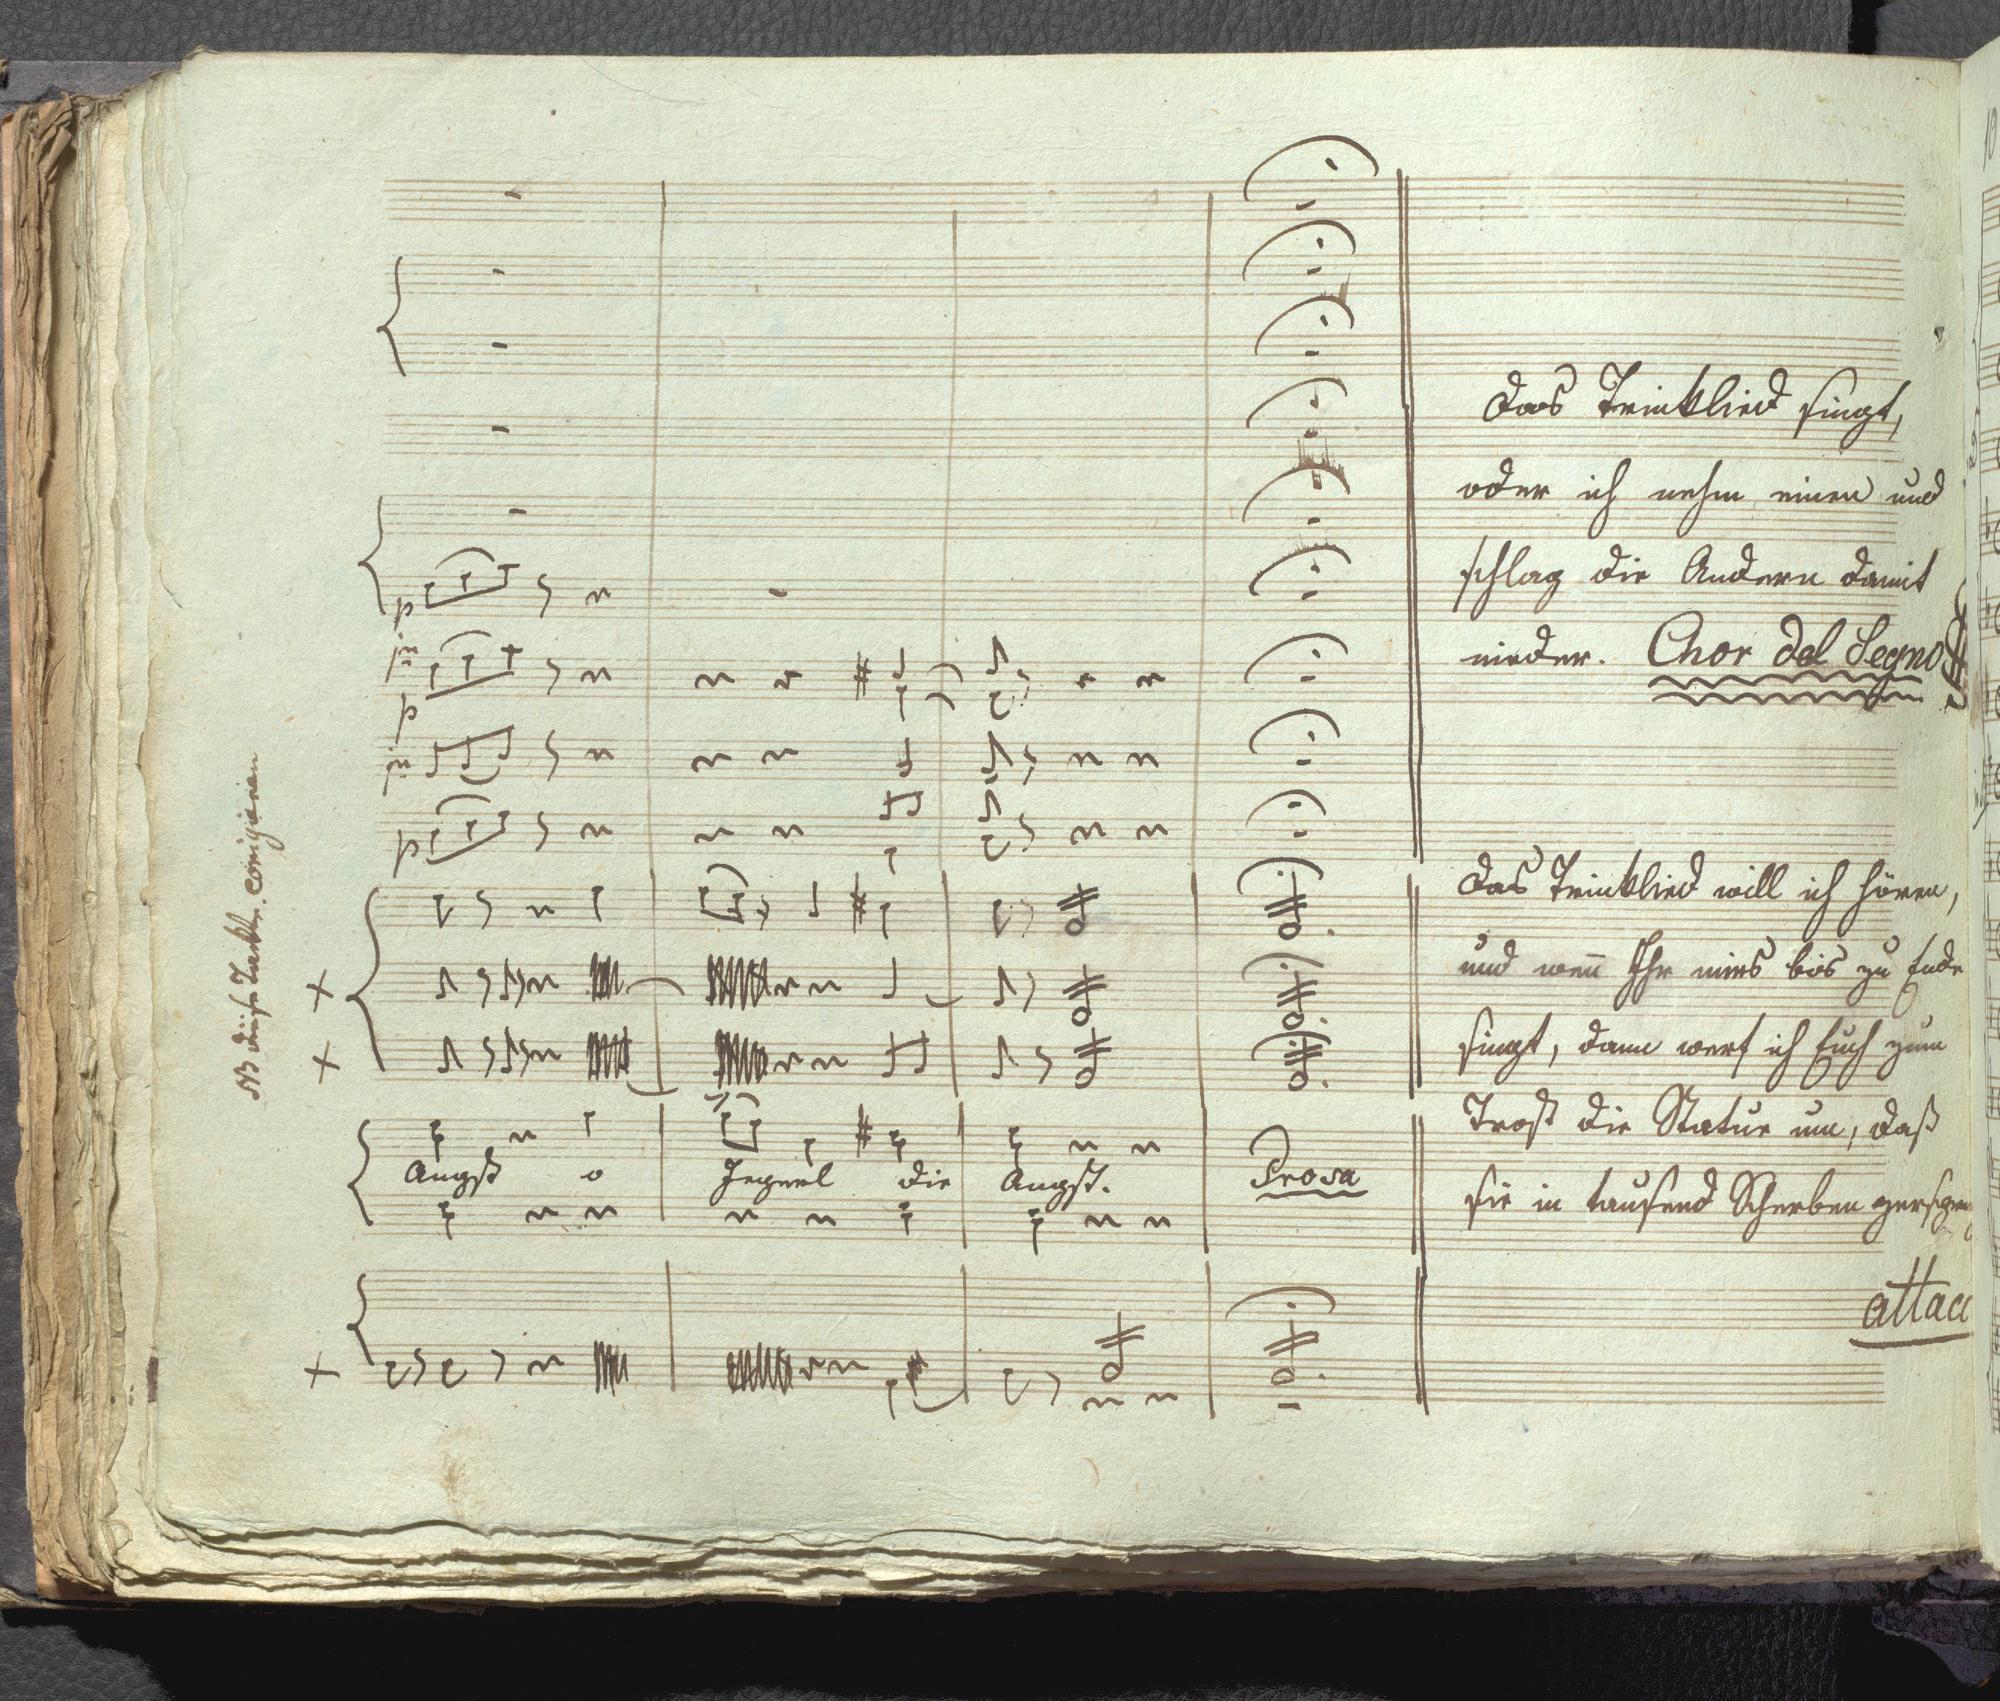 Das Trinklied singt,
oder ich nehm einen und
schlag die Andern damit
nieder. Chor dal Segno
NB diese Takte corrigieren
Das Trinklied will ich hören,
und wen̄ Ihr mirs bis zu Ende
singt, dann werf ich Euch zum
Trost die Statue um, daß
Angst o Jegerl die Angst. Prosa
sie in tausend Scherben
attacc
p
p
p